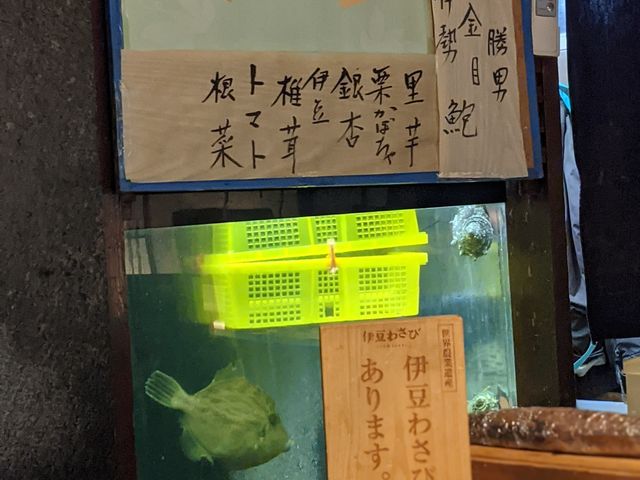 勝男
金目鮑
伊勢
里芋
栗かぼちゃ
銀杏
伊豆
椎茸
トマト
根菜
世界農業遺産
伊豆わさび
伊豆わさび
あります。